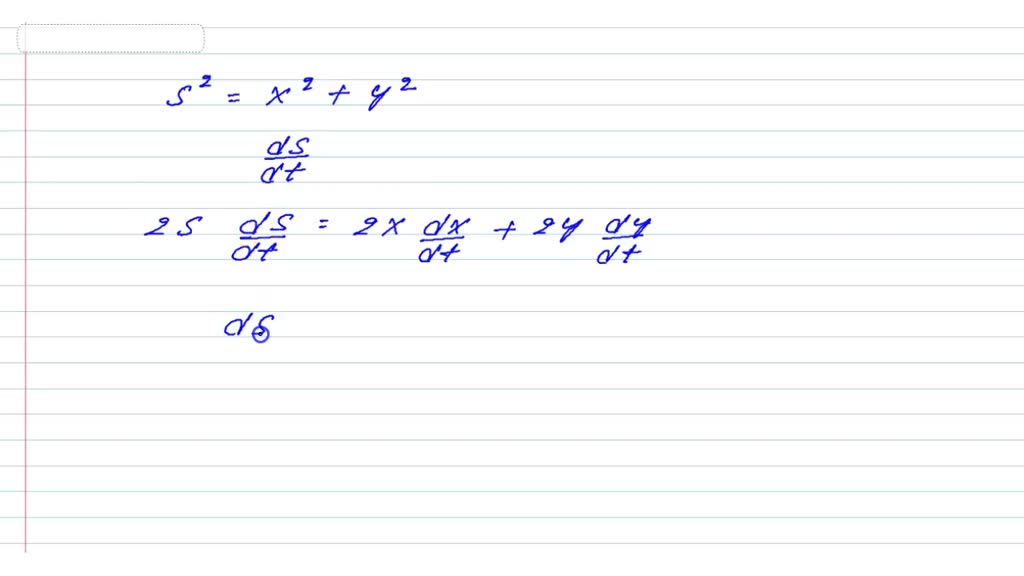 s² = x² + y²
ds/dt
2s ds/dt = 2x dx/dt + 2y dy/dt
ds